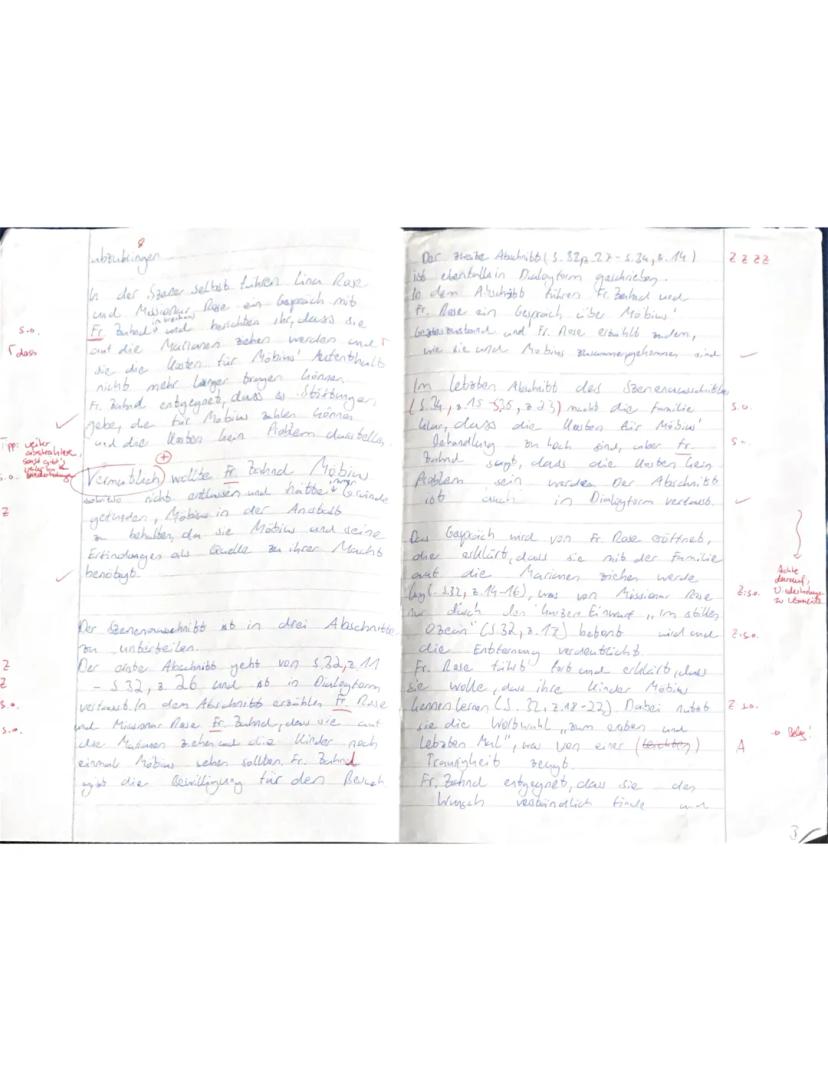 abzubringen.
In der Szene selbst führen Lina Rose
und Missionar Rose ein Gespräch mit
Fr. Zahnd und berichten ihr, dass sie
auf die Marianen ziehen werden und
sie die Kosten für Möbius' Aufenthalt
nicht mehr länger tragen können.
Fr. Zahnd entgegnet, dass es Stiftungen
gebe, die für Möbius zahlen können
und die Kosten kein Problem darstellen.
Vermutlich wollte Fr. Zahnd Möbius
sowieso nicht entlassen und hätte immer Gründe
gefunden, Möbius in der Anstalt
zu behalten, da sie Möbius und seine
Erfindungen als Quelle zu ihrer Macht
benötigt.
Der Szenenausschnitt ist in drei Abschnitte
zu unterteilen.
Der erste Abschnitt geht von S.32, z.11
- S.32, z.26 und ist in Dialogform
verfasst. In dem Abschnitt erzählen Fr. Rose
und Missionar Rose Fr. Zahnd, dass sie auf
die Marianen ziehen und die Kinder noch
einmal Möbius sehen sollten. Fr. Zahnd
gibt die Bewilligung für den Besuch
s.o.
Γ dass
Tipp: weiter
Z
Z
Z
s.o.
s.o.
Der zweite Abschnitt (S. 32, z. 27 - S. 34, z. 14)
ist ebenfalls in Dialogform geschrieben.
In dem Abschnitt führen Fr. Zahnd und
Fr. Rose ein Gespräch über Möbius'
Geisteszustand und Fr. Rose erzählt zudem,
wie sie und Möbius zusammengekommen sind
Im letzten Abschnitt des Szenenausschnittes
(S.34, z.15 - S.35, z.23) macht die Familie
klar, dass die Kosten für Möbius'
Behandlung zu hoch sind, aber Fr.
Zahnd sagt, dass die Kosten kein
Problem sein werden. Der Abschnitt
ist auch in Dialogform verfasst.
Das Gespräch wird von Fr. Rose eröffnet,
die erklärt, dass sie mit der Familie
auf die Marianen ziehen werde
(S.32, z.14-16), was von Missionar Rose
nur durch den kurzen Einwurf „Im stillen
Ozean" (S.32, z.17) betont wird und
die Entfernung verdeutlicht.
Fr. Rose führt fort und erklärt, dass
sie wolle, dass ihre Kinder Möbius
kennen lernen (S. 32, z.18-22). Dabei nutzt
sie die Wortwahl „zum ersten und
letzten Mal", was von einer (leichten)
Traurigkeit zeugt.
Fr. Zahnd entgegnet, dass sie den
Wunsch verständlich finde und
Z Z Z Z
s.o.
s.o.
Achte
darauf,
Wiederholungen
zu vermeiden
Z: s.o.
Z: s.o.
Z s.o.
A
→ Beleg!
3